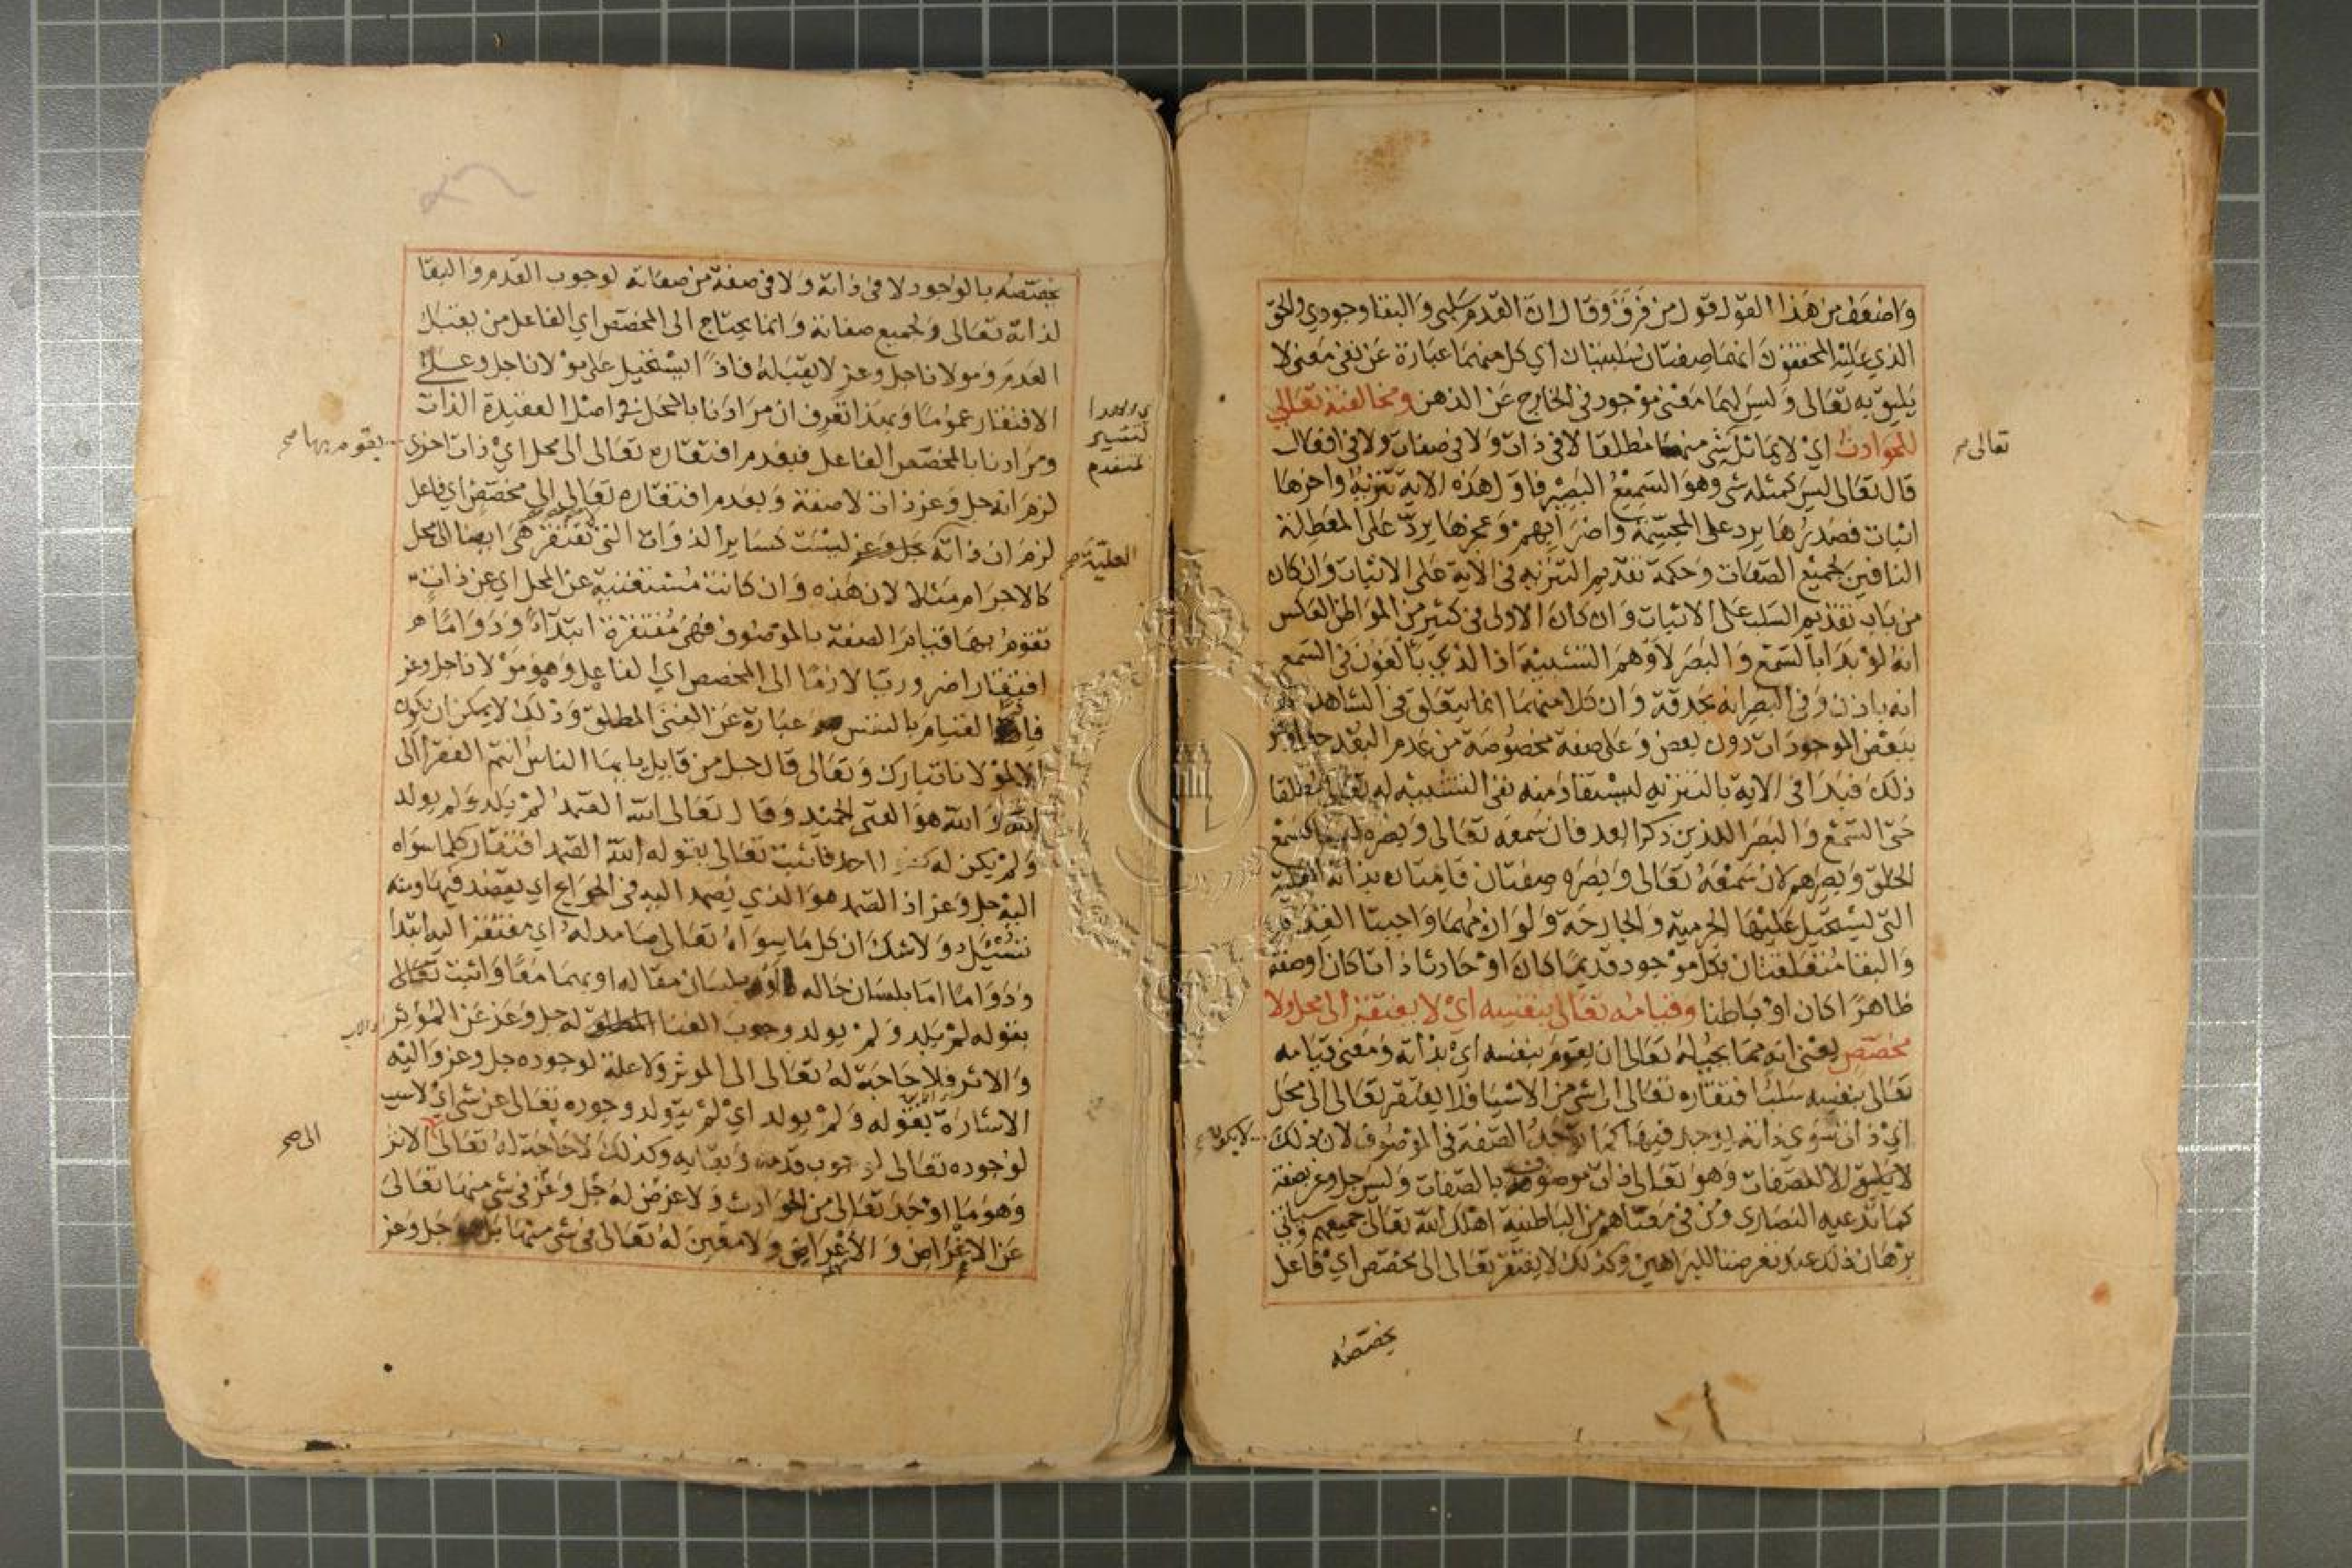 واضعف من هذا القول قول من فرق وقال ان القدم سلبي والبقا وجودي والحق
الذي عليه المحققون انهما صفتان سلبيتان اي كل منهما عبارة عن نفي معنى لا
يليق به تعالى وليس لهما معنى موجود في الخارج عن الذهن ومخالفته تعالى
للحوادث اي لا يماثل شي منها مطلقا لا في ذات ولا في صفات ولا في افعال
تعالى صح
قال تعالى ليس كمثله شي وهو السميع البصير فاول هذه الاية تنزيه واخرها
اثبات فصدرها يرد على المجسمة واضرابهم وعجزها يرد على المعطلة
النافين لجميع الصفات وحكمة تقديم التنزيه في الاية على الاثبات وان كان
من باب تقديم السلب على الاثبات وان كان الاولى في كثير من المواطن العكس
انه لو بدا بالسمع والبصر لاوهم التشبيه اذ الذي يالفون في السمع
انه باذن وفي البصر انه بحدقة وان كلا منهما انما يتعلق في الشاهد
ببعض الموجودات دون بعض وعلى صفة مخصوصة من عدم البعد جدا ونحو
ذلك فبدا في الاية بالتنزيه ليستفاد منه نفي التشبيه له تعالى مطلقا
حتى السمع والبصر اللذين ذكرا بعد فان سمعه تعالى وبصره ليسا كسمع
الخلق وبصرهم لان سمعه تعالى وبصره صفتان قايمتان بذاته العلية
التي يستحيل عليها الجرمية والجارحة ولوازمهما واجبتا القدم
والبقا متعلقتان بكل موجود قديما كان او حادثا ذاتا كان او صفة
ظاهرا كان او باطنا وقيامه تعالى بنفسه اي لا يفتقر الى محل ولا
مخصص يعني انه مما يجب له تعالى ان يقوم بنفسه اي بذاته ومعنى قيامه
تعالى بنفسه سلب افتقاره تعالى الى شي من الاشيا فلا يفتقر تعالى الى محل
اي ذات سوى ذاته يوجد فيها كما توجد الصفة في الموصوف لان ذلك
لا يكون صح
لا يليق الا للصفات وهو تعالى ذات موصوف بالصفات وليس جل وعز بصفة
كما تدعيه النصارى ومن في معناهم من الباطنية اهلك الله تعالى جميعهم وسياتي
برهان ذلك عند تعرضنا للبراهين وكذلك لا يفتقر تعالى الى مخصص اي فاعل
يخصصه
يخصصه بالوجود لا في ذاته ولا في صفة من صفاته لوجوب القدم والبقا
لذاته تعالى ولجميع صفاته وانما يحتاج الى المخصص اي الفاعل من يقبل
العدم ومولانا جل وعز لا يقبله فاذا يستحيل على مولانا جل وعلا
الافتقار عموما وبهذا تعرف ان مرادنا بالمحل في اصل العقيدة الذات
ومرادنا بالمخصص الفاعل فبعدم افتقاره تعالى الى محل اي ذات اخرى
يقوم بها صح
لزم انه جل وعز ذات لا صفة وبعدم افتقاره تعالى الى مخصص اي فاعل
لزم ان ذاته جل وعز ليست كساير الذوات التي تفتقر هي ايضا الى محل
العلية صح
كالاجرام مثلا لان هذه وان كانت مستغنية عن المحل اي عن ذات
تقوم بها قيام الصفة بالموصوف فهي مفتقرة ابتدآء ودواما
افتقارا ضروريا لازما الى المخصص اي الفاعل وهو مولانا جل وعز
القيام بالنفس عبارة عن الغنى المطلق وذلك لا يمكن ان يكون
الا لمولانا تبارك وتعالى قال جل من قايل يا يها الناس انتم الفقرا الى
الله والله هو الغني الحميد وقال تعالى الله الصمد لم يلد ولم يولد
ولم يكن له كفوا احد فاثبت تعالى بقوله الله الصمد افتقار كلما سواه
اليه جل وعز اذ الصمد هو الذي يصمد اليه في الحوايج اي يقصد فيها ومنه
تسيل ولا شك ان كل ما سواه تعالى صامد له اي مفتقر اليه ابتدا
ودواما اما بلسان حاله او بلسان مقاله او بهما معا واثبت تعالى
بقوله لم يلد ولم يولد وجوب الغنا المطلق له جل وعز عن المؤثر
والاثر فلا حاجة له تعالى الى الموثر ولا علة لوجوده جل وعز واليه
الاشارة بقوله ولم يولد اي لم يتولد وجوده تعالى عن شي اي لا سبب
لوجوده تعالى لوجوب قدمه وبقايه وكذلك لا حاجة له تعالى الاثر
الى صح
وهو ما اوجد تعالى من الحوادث ولا غرض له جل وعز في شي منها تعالى
عن الاغراض والاعراض ولا معين له تعالى في شي منها بل هو جل وعز